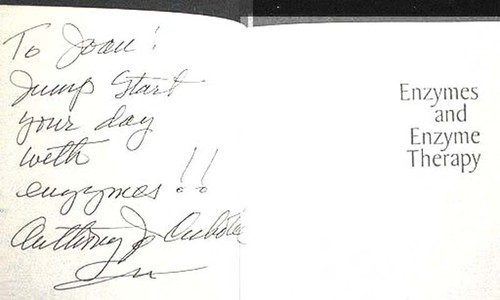 To Joan!
Jump Start
your day
with
enzymes!!
Anthony J. Cichoke
Enzymes
and
Enzyme
Therapy